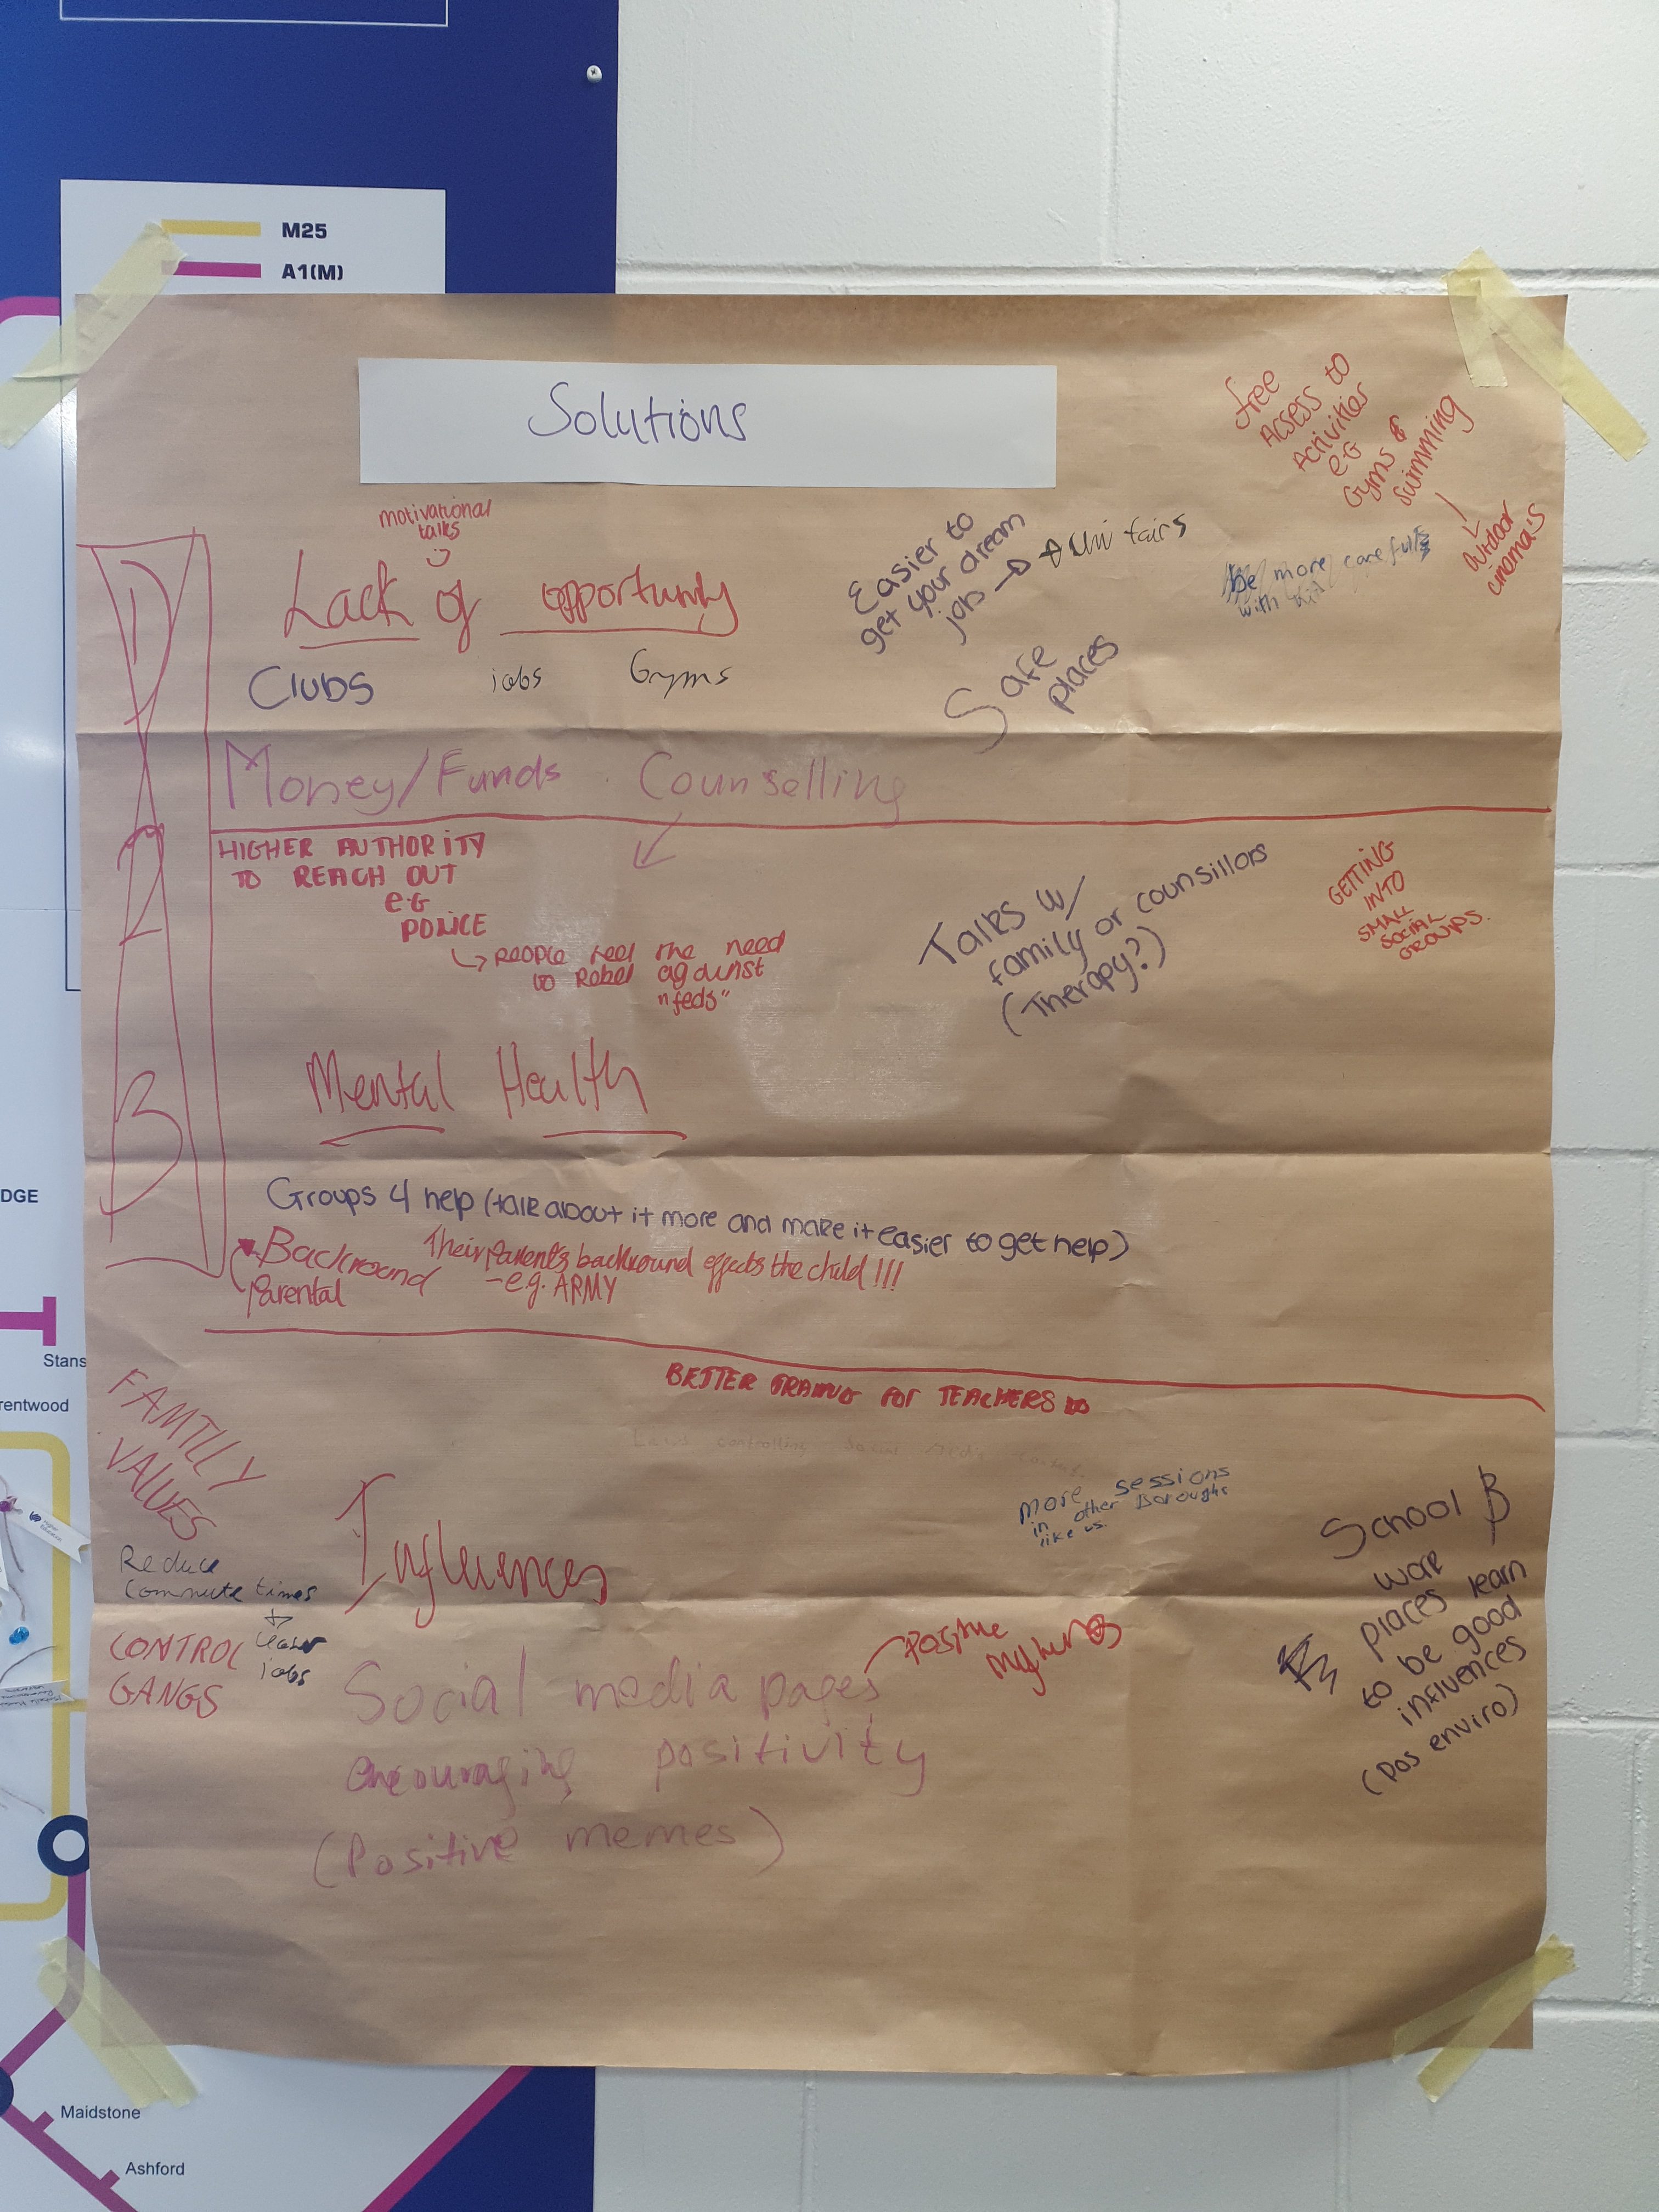 M25
A1(M)
Solutions
free
Acsess to
Activities
e.G
Gyms &
Swimming
outdoor
cinema's
motivational
talks
Lack of opportunity
Clubs jobs Gyms
Easier to
get your dream
job → uni fairs
be more carefull
with
Safe
places
Money/Funds . Counselling
HIGHER AUTHORITY
TO REACH OUT
e.G
POLICE
→ people feel the need
to Rebel against
"feds"
Talks w/
family or counsillors
(Therapy?)
GETTING
INTO
SMALL
SOCIAL
GROUPS.
Mental Health
Groups 4 help (talk about it more and make it easier to get help)
Backround
Parental
Their Parent's backround effects the child!!!
- e.g. ARMY
BETTER TRAING FOR TEACHERS
Laws controlling Social Media
FAMILY
VALUES
more sessions
in other Boroughs
like us.
Influences
Reduce
Commute times
jobs
CONTROL
GANGS
School
work
places learn
to be good
influences
(pos enviro)
Positive
Social media pages
encouraging positivity
(Positive memes)
1
2
3
DGE
Stans
rentwood
Maidstone
Ashford